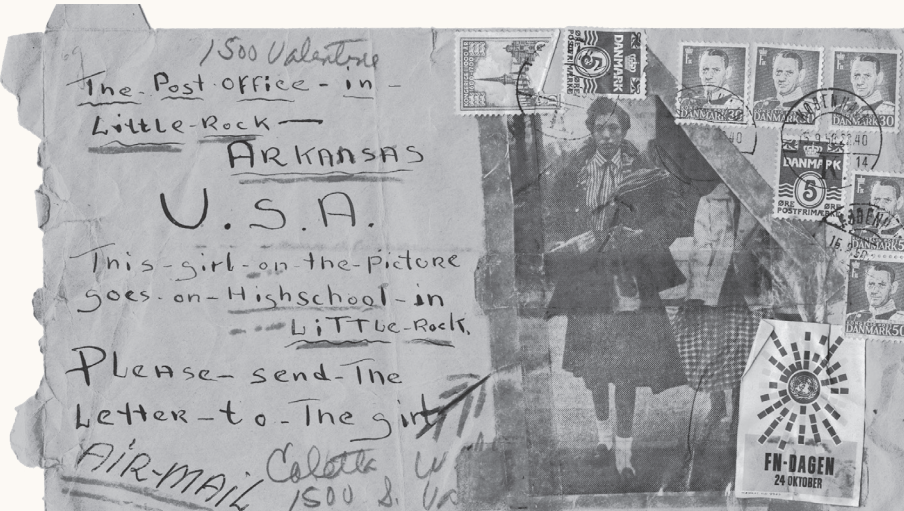 1500 Valentine
The Post office - in -
Little-Rock —
ARKANSAS
U.S.A.
This-girl-on-the-picture
goes-on-Highschool-in
LiTTLe-Rock.
Please-send-The
Letter-to-The girl
AIR-MAIL
Coletta
1500 S.
DANMARK
5
ØRE
POSTFRIMÆRKE
DANMARK
DANMARK
DANMARK 30
DANMARK
5
ØRE ØRE
POSTFRIMÆRKE
14
DANMARK 50
FN-DAGEN
24 OKTOBER